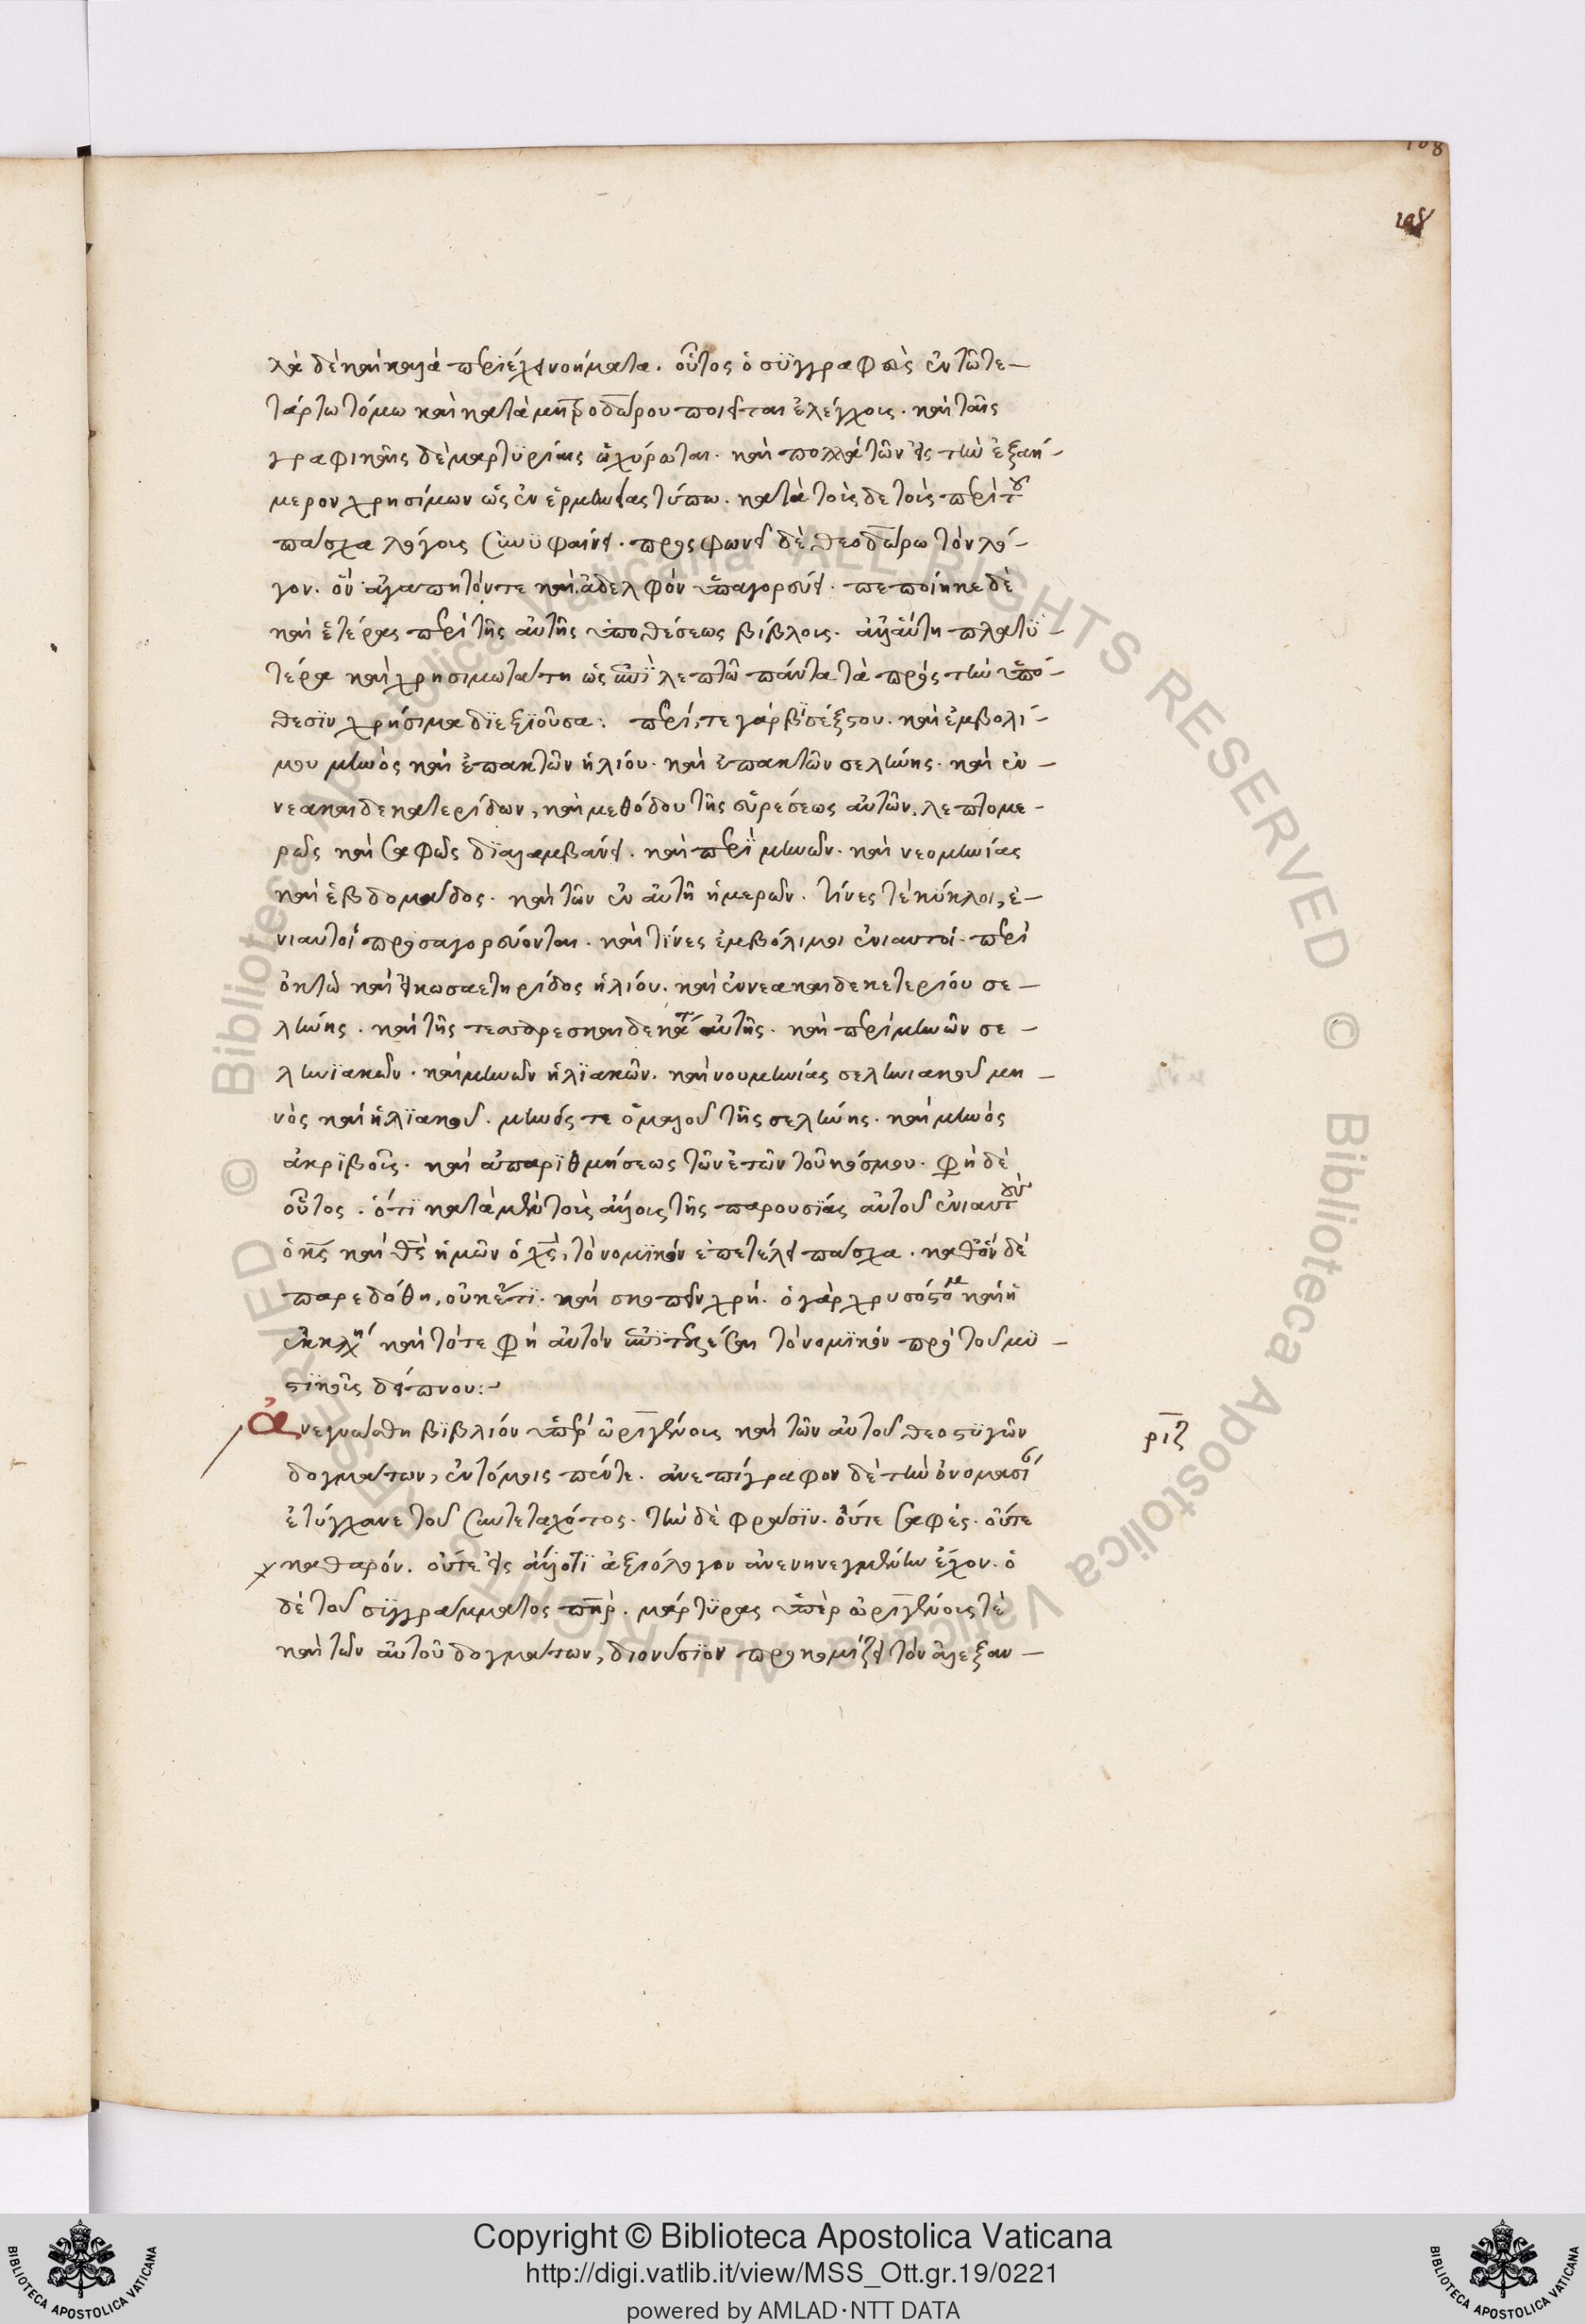 108
108
λὰ δὲ καὶ καλὰ περιέχει νοήματα. οὗτος ὁ συγγραφεὺς ἐν τῶ τε-
τάρτω τόμω καὶ κατὰ μητροδώρου ποιεῖται ἐλέγχους. καὶ ταῖς
γραφικαῖς δὲ μαρτυρίαις ὠχύρωται. καὶ πολλὰ τῶν εἰς τὴν ἑξαή-
μερον χρησίμων ὡς ἐν ἑρμηνείας τύπω. κατὰ τοὺς δε τοὺς περὶ τοῦ
πάσχα λόγους συνυφαίνει. προσφωνεῖ δὲ θεοδώρω τὸν λό-
γον. ὃν ἀγαπητόν τε καὶ ἀδελφὸν ὑπαγορεύει. πεποίηκε δὲ
καὶ ἑτέρας περὶ τῆς αὐτῆς ὑποθέσεως βίβλους. ἀλλ' αὕτη πλατυ-
τέρα καὶ χρησιμωτάτη ὡς ἐπὶ λεπτῶ πάντα τὰ πρὸς τὴν ὑπό-
θεσιν χρήσιμα διεξιοῦσα: περί, τε γὰρ βισέξτου. καὶ ἐμβολί-
μου μηνὸς καὶ ἐπακτῶν ἡλίου. καὶ ἐπακτῶν σελήνης. καὶ ἐν-
νεακαιδεκατερίδων, καὶ μεθόδου τῆς εὑρέσεως αὐτῶν. λεπτομε-
ρῶς καὶ σαφῶς διαλαμβάνει. καὶ περὶ μηνῶν. καὶ νεομηνίας
καὶ ἑβδομάδος. καὶ τῶν ἐν αὐτῆ ἡμερῶν. τίνες τὲ κύκλοι, ἐ-
νιαυτοὶ προσαγορεύονται. καὶ τίνες ἐμβόλιμοι ἐνιαυτοί. περὶ
ὀκτὼ καὶ εἰκωσαετηρίδος ἡλίου. καὶ ἐννεακαιδεκετερίου σε-
λήνης. καὶ τῆς τεσσαρεσκαιδεκάτ αὐτῆς. καὶ περὶ μηνῶν σε-
ληνιακῶν. καὶ μηνῶν ἡλιακῶν. καὶ νουμηνίας σεληνιακοῦ μη-
νὸς καὶ ἡλιακοῦ. μηνός τε ὁμαλοῦ τῆς σελήνης. καὶ μηνὸς
ἀκριβοῦς. καὶ ἀπαριθμήσεως τῶν ἐτῶν τοῦ κόσμου. φὴ δὲ
οὗτος. ὅτι κατὰ μὲν τοὺς ἄλλους τῆς παρουσίας αὐτοῦ ἐνιαυτοὺς
ὁ κς καὶ θς ἡμῶν ὁ χς, τὸ νομικὸν ἐπετέλει πάσχα. καθ' ὃν δὲ
παρεδόθη, οὐκέτι. καὶ σκοπεῖν χρή. ὁ γὰρ χρυσόστομ καὶ ἡ
ἐκκλη καὶ τότε φὴ αὐτὸν ἐπιτελέσαι τὸ νομικὸν πρὸ τοῦ μυ-
στικοῦ δείπνου:-
Ἀνεγνώσθη βιβλίον ὑπὲρ ὠριγένους καὶ τῶν αὐτοῦ θεοστυγῶν
ριζ
δογμάτων, ἐν τόμοις πέντε. ἀνεπίγραφον δὲ τὴν ὀνομασί
ἐτύγχανε τοῦ συντεταχότος. τὴν δὲ φράσιν. οὔτε σαφές. οὔτε
καθαρόν. οὔτε εἰς ἄλλο τι ἀξιόλογον ἀνενηνεγμένην ἔχον. ὁ
δὲ τοῦ συγγράμματος πηρ. μάρτυρας ὑπὲρ ὠριγένους τὲ
καὶ τῶν αὐτοῦ δογμάτων, διονύσιον προκομίζει τὸν ἀλεξαν-
Copyright © Biblioteca Apostolica Vaticana
http://digi.vatlib.it/view/MSS_Ott.gr.19/0221
powered by AMLAD·NTT DATA
BIBLIOTECA APOSTOLICA VATICANA
BIBLIOTECA APOSTOLICA VATICANA
© Biblioteca Apostolica Vaticana ALL RIGHTS RESERVED © Biblioteca Apostolica Vaticana ALL RIGHTS RESERVED